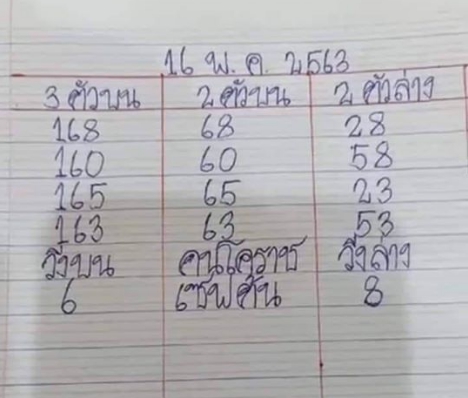 16 พ.ค. 2563
3 ตัวบน 2 ตัวบน 2 ตัวล่าง
168 68 28
160 60 58
165 65 23
163 63 53
วิ่งบน คนโคราช วิ่งล่าง
6 เซฟศัน 8